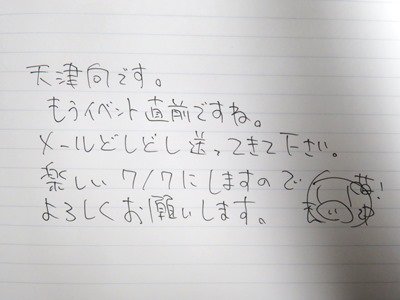 天津向です。
もうイベント直前ですね。
メールどしどし送ってきて下さい。
楽しい7/7にしますので
よろしくお願いします。